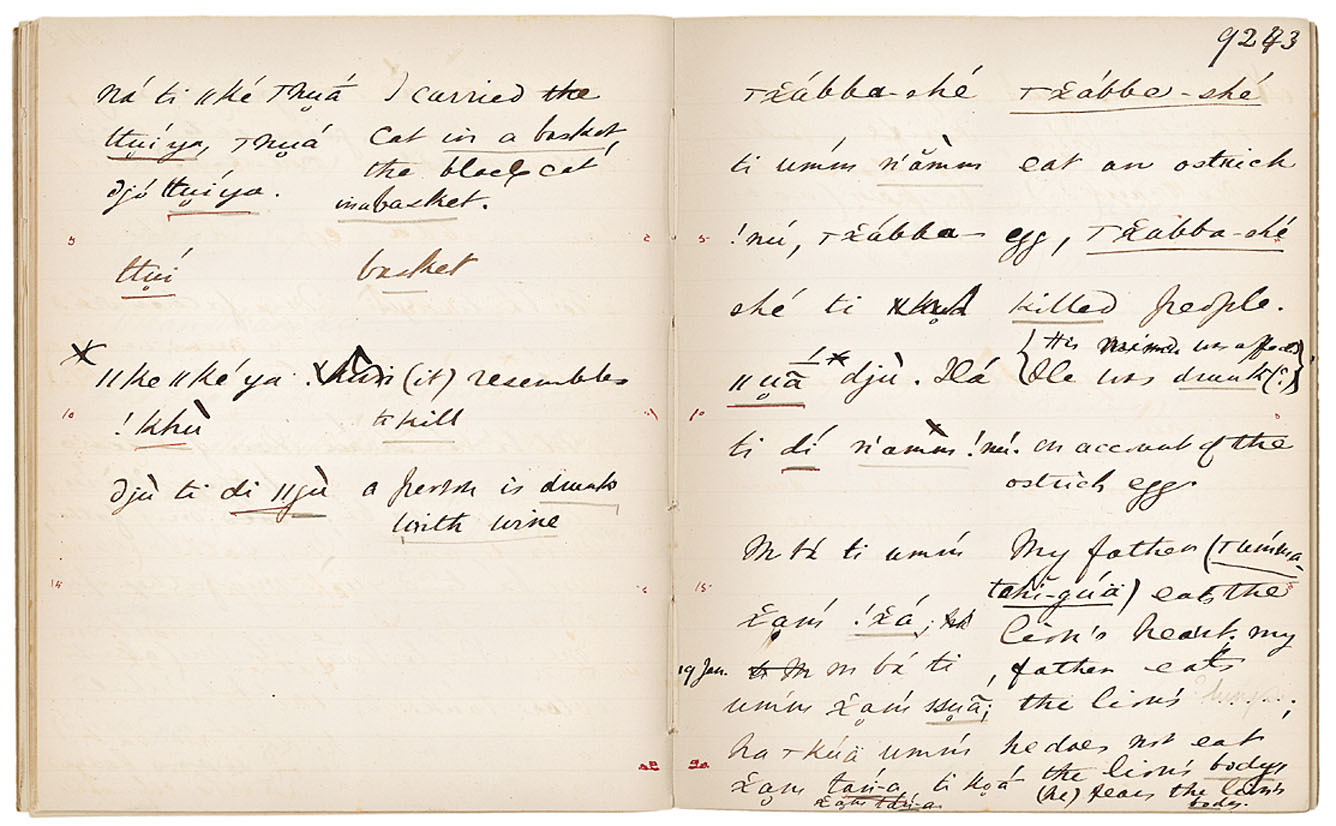 ná ti ǁké ꞱNu̥á I carried the
ttu̥íya, ꞱNu̥á cat in a basket,
djó ttu̥íya. the black cat
in a basket.
5
ttu̥í basket
ǁke ǁké ya. (it) resembles
10
!khù to kill
djù ti di ǁgù a person is drunk
with wine
15
20
9243
Ʇx̌ábba-shé Ʇx̌ábba-shé
ti umm n'ămm eat an ostrich
5 !nú, Ʇx̌ábba- egg, Ʇx̌ábba-shé
shé ti killed people.
{His mind was affected
ǁu̥ā djù. Há He was drunk (?)}
10
ti dí n'amm !nú. on account of the
ostrich egg.
M bá ti umm My father (Ʇumma-
15 tchĭ-gúä) eats the
x̌a̤m !x̌á; lion's heart, my
19 Jan. m bá ti father eats
umm x̌a̤m the lion's ......;
ha Ʇkúä umm he does not eat
20 x̌a̤m tań-a, ti ko̤á the lion's body,
x̌a̤m tań-a (he) fears the lion's
body.